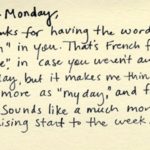 Monday,
nks for having the word
n" in you. That's French f
e", in case you weren't au
ay, but it makes me thin
more as "myday," and f
Sounds like a much mor
ising start to the week.